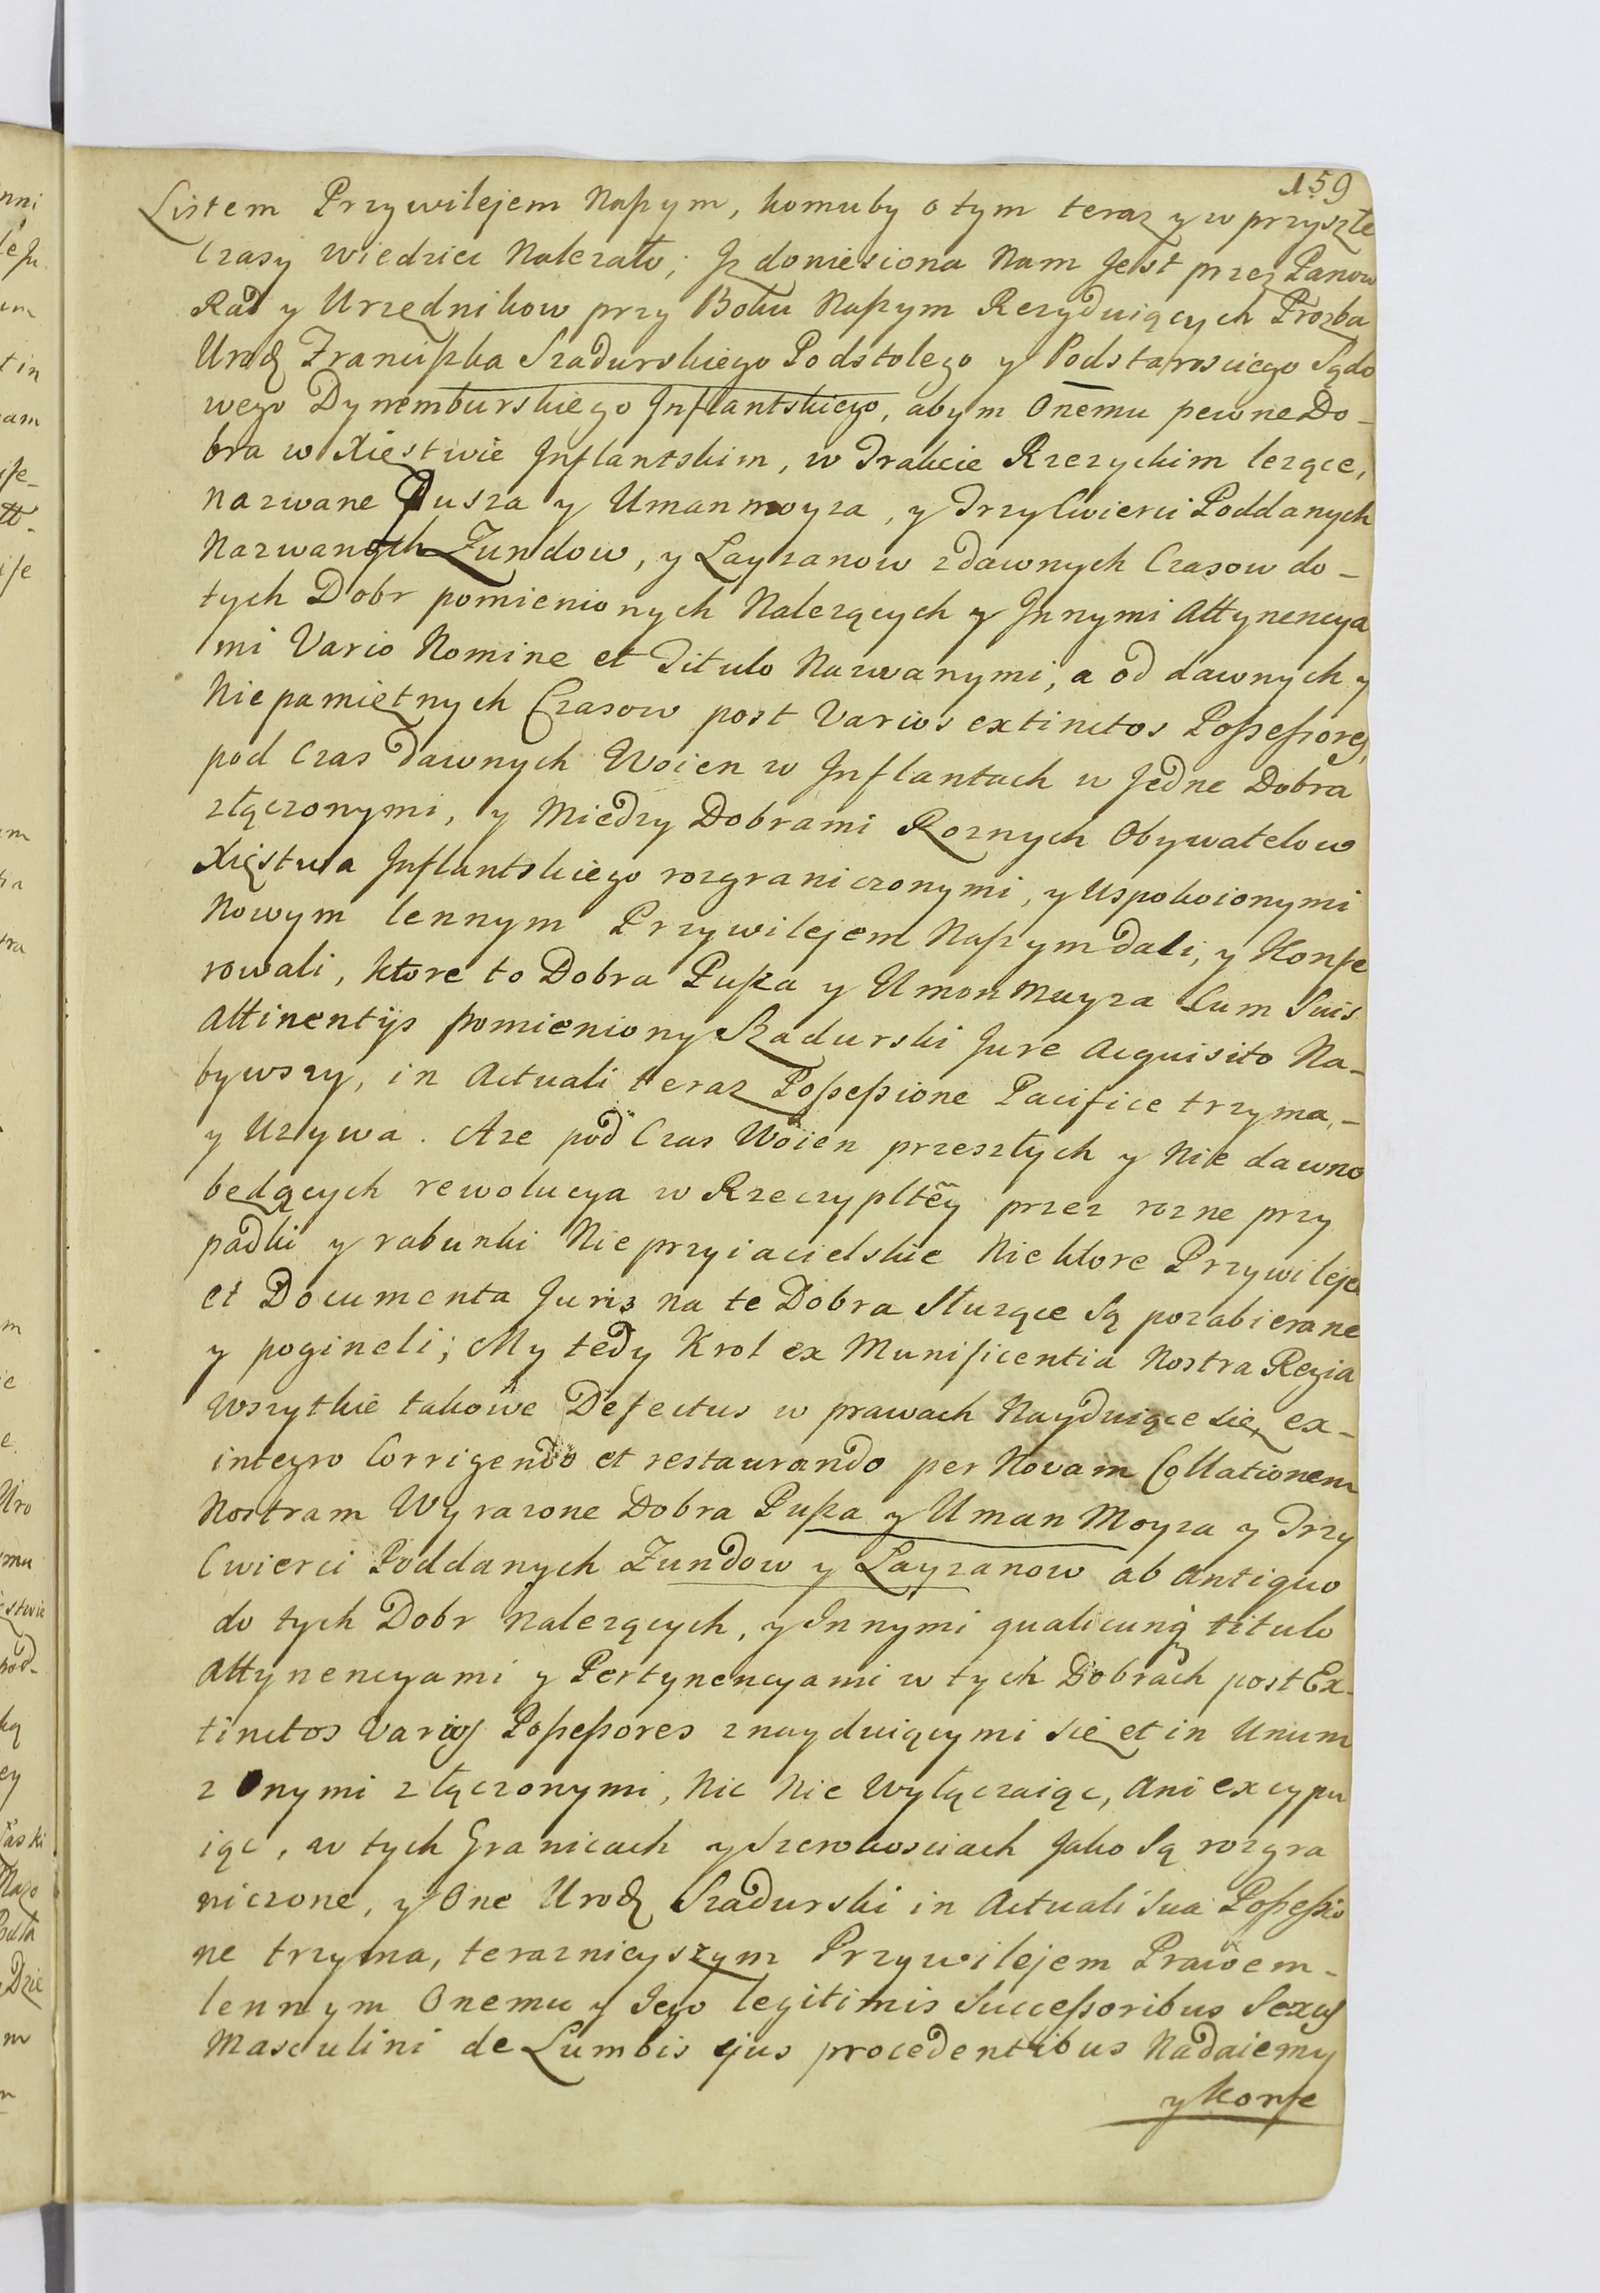 159
Listem Przywilejem Naszym, komuby o tym teraz y w przyszłe
Czasy Wiedziec Nalezało; Jz doniesiona Nam Jest przez Panow
Rad y Urzędnikow przy Boku Naszym Rezyduiących Prozba
Urodz Franciszka Szadurskiego Podstolego y Podstarosciego Sądo
wego Dynemburskiego Jnflantskiego, abym Onemu pewne Do-
bra w Xięstwie Jnflantskim, w Trakcie Rzezyckim lezące,
nazwane Pusza y Umanmoyza, y Trzy Cwierci Poddanych
Nazwanych Zundow, y Layzanow zdawnych Czasow do-
tych Dobr pomienionych Nalezących y Jnnymi Attynencya
mi Vario Nomine et Titulo Nazwanymi, a od dawnych y
Niepamiętnych Czasow post Varios extinctos Possessores,
pod Czas dawnych Woien w Jnflantach w Jedne Dobra
złączonymi, y Miedzy Dobrami Roznych Obywatelow
Xięstwa Jnflantskiego rozgraniczonymi, y Uspokoionymi
Nowym lennym Przywilejem Naszym dali, y Konfe
rowali, ktore to Dobra Pusza y Umonmuyza Cum Suis
Attinentijs pomieniony Szadurski Jure Acquisito Na-
bywszy, in Actuali teraz Possessione Pacifice trzyma,-
y Uzywa. Aze pod Czas Woien przeszłych y Nie dawno
będących rewolucya w Rzeczypltey przez rozne przy
padki y rabunki Nieprzyiacielskie Niektore Przywileje
et Documenta Juris na te Dobra Słuzące Są pozabierane
y pogineli; My tedy Krol ex Munificentia Nostra Regia
Wszytkie takowe Defectus w prawach Nayduiące się, ex-
integro Corrigendo et restaurando per Novam Collationem
Nostram Wyrazone Dobra Pusza y Uman Moyza y Trzy
Cwierci Poddanych Zundow y Layzanow ab antiquo
do tych Dobr nalezących, y Jnnymi qualicunq titulo
Attynencyami y Pertynencyami w tych Dobrach post Ex-
tinctos Varios Possessores znayduiącymi się et in Unum
z Onymi złączonymi, Nic Nie Wyłączaiąc, Ani excypu
iąc, w tych Granicach y Szerokosciach Jako Są rozgra
niczone, y One Urodz Szadurski in Actuali Sua Possessio
ne trzyma, teraznieyszym Przywilejem Prawem-
lennym Onemu y Jego legitimis Successoribus Sexus
Masculini de Lumbis ejus procedentibus Nadaiemy
y Konfe